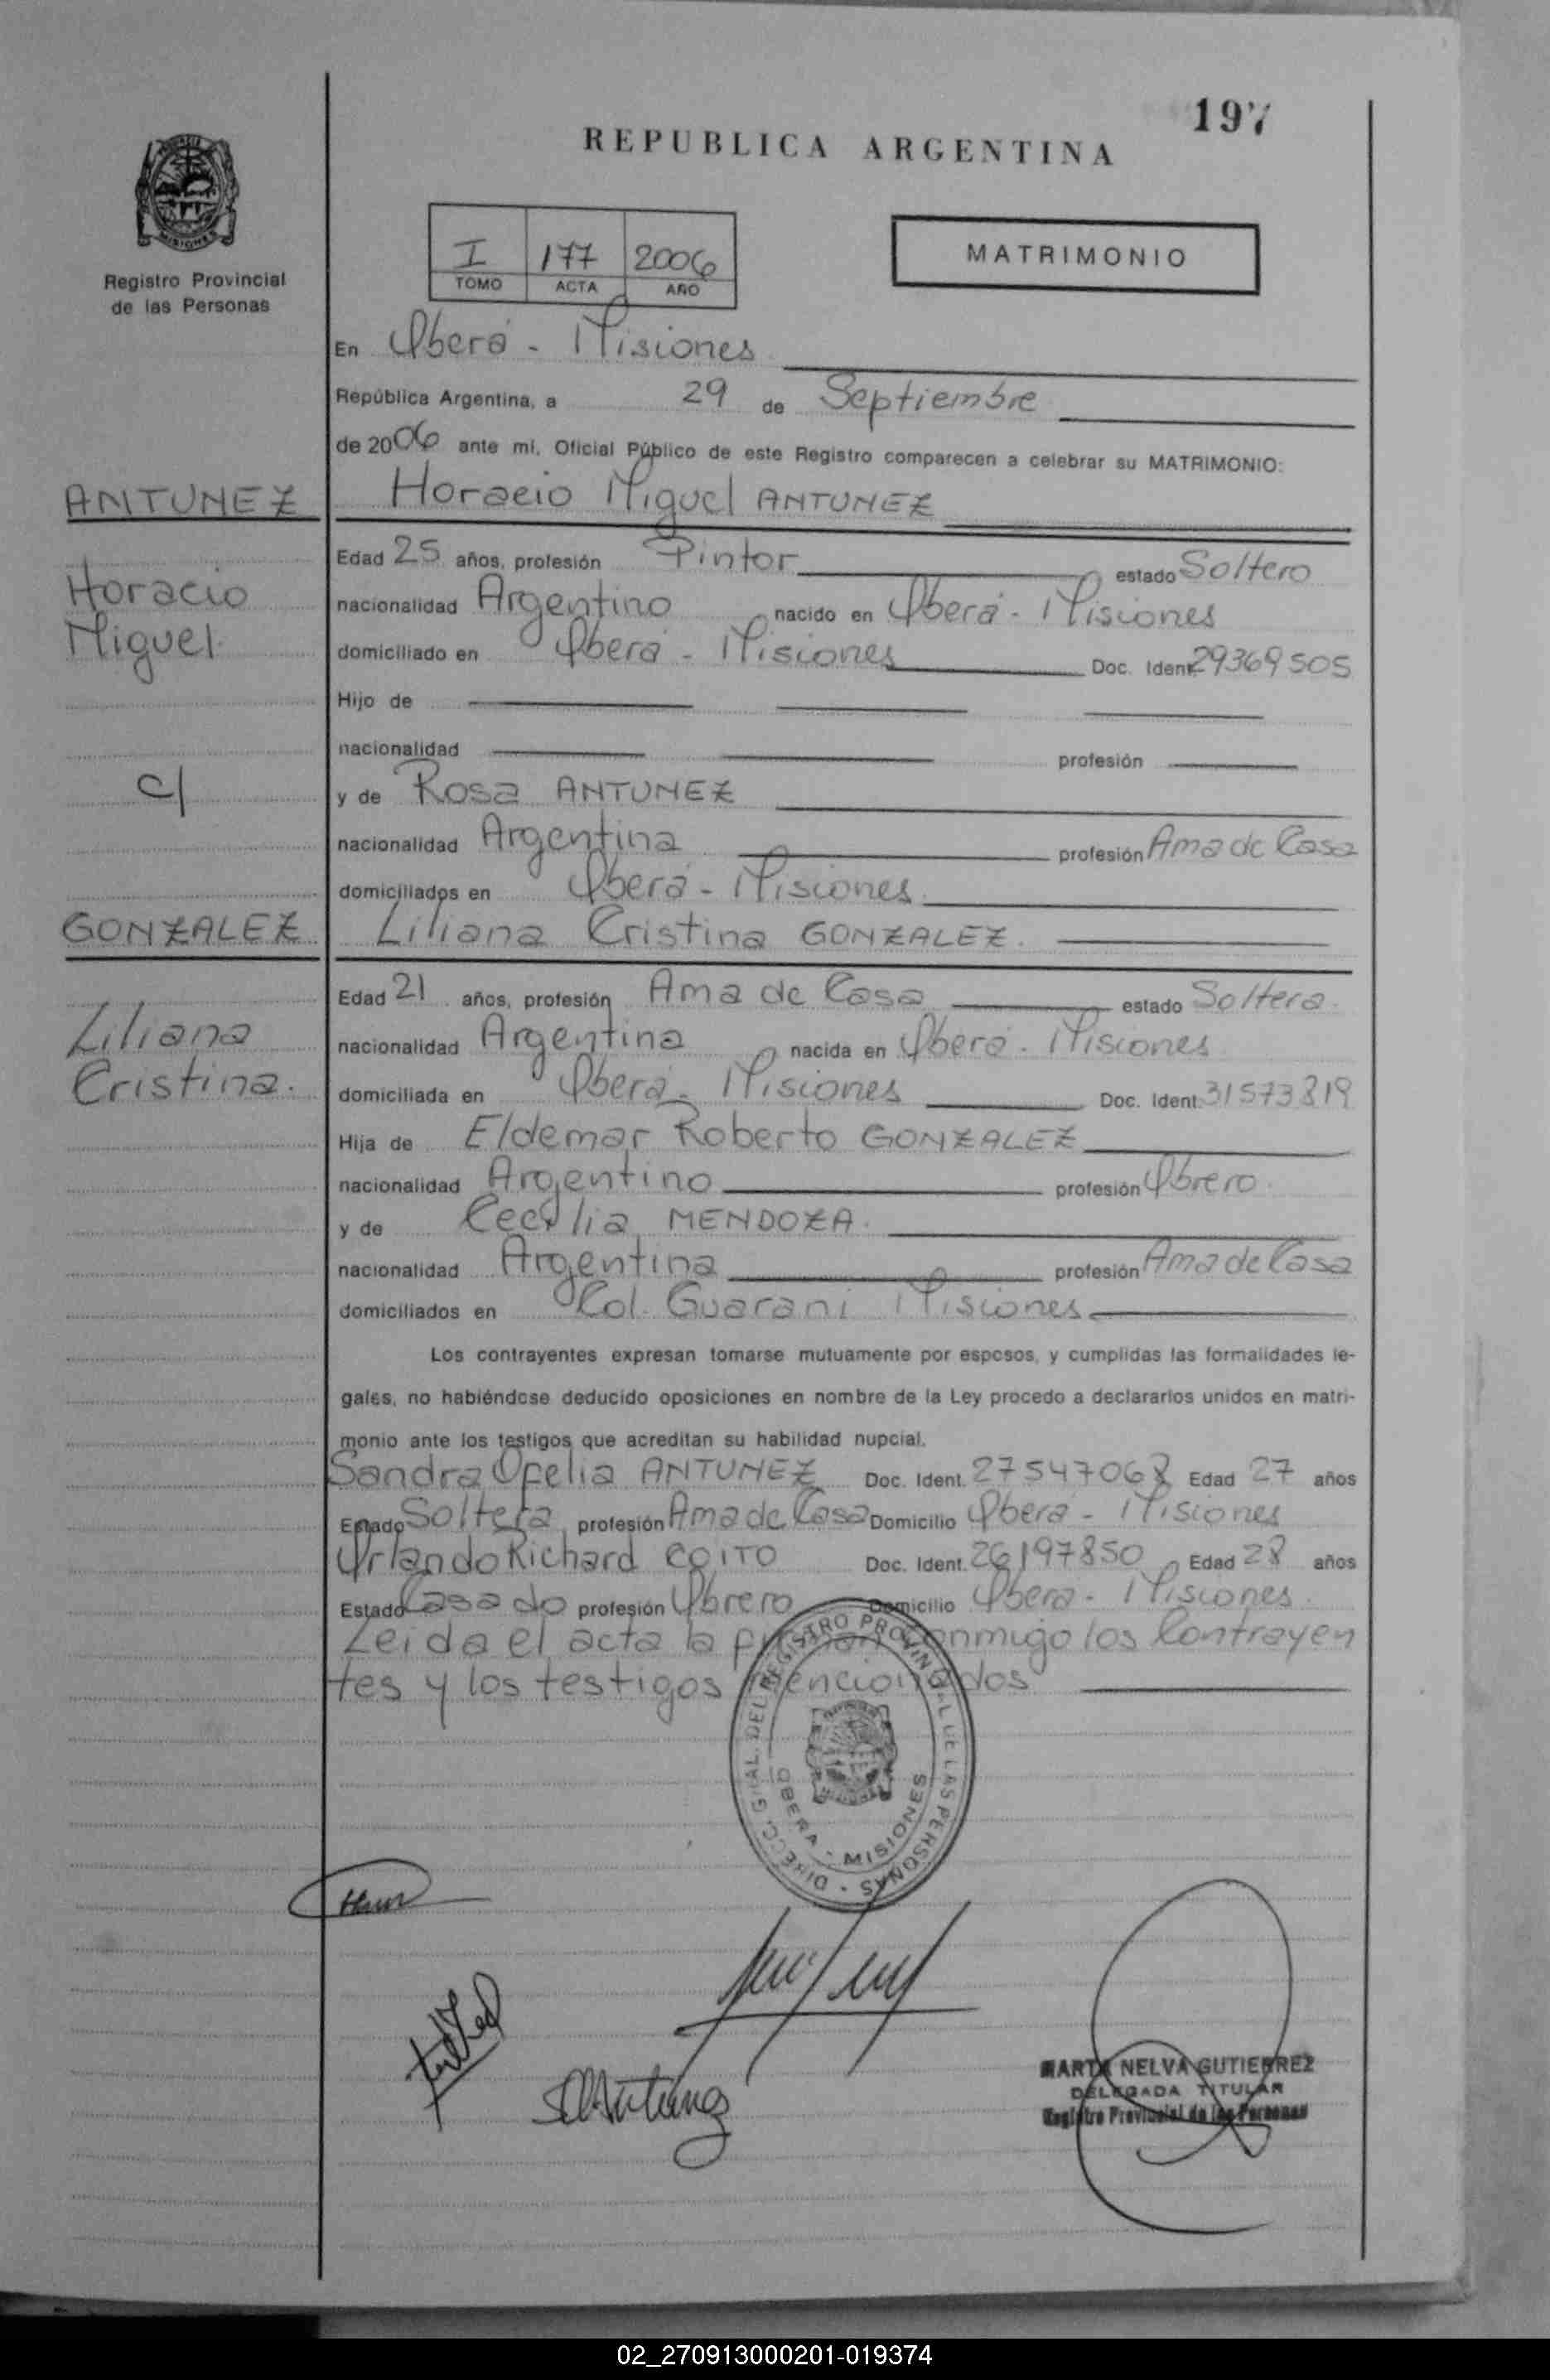 197
REPUBLICA ARGENTINA
MISIONES
Registro Provincial
de las Personas
I 177 2006
TOMO ACTA AÑO
MATRIMONIO
En Oberá - Misiones
República Argentina, a 29 de Septiembre
de 2006 ante mi, Oficial Público de este Registro comparecen a celebrar su MATRIMONIO:
ANTUNEZ
Horacio Miguel ANTUNEZ
Horacio
Miguel
Edad 25 años, profesión Pintor estado Soltero
nacionalidad Argentino nacido en Oberá - Misiones
domiciliado en Oberá - Misiones Doc. Ident. 29369505
Hijo de
nacionalidad profesión
c/
y de Rosa ANTUNEZ
nacionalidad Argentina profesión Ama de Casa
domiciliados en Oberá - Misiones
GONZALEZ
Liliana Cristina GONZALEZ.
Liliana
Cristina.
Edad 21 años, profesión Ama de Casa estado Soltera.
nacionalidad Argentina nacida en Oberá - Misiones
domiciliada en Oberá - Misiones Doc. Ident. 31573819
Hija de Eldemar Roberto GONZALEZ
nacionalidad Argentino profesión Obrero.
y de Cecilia MENDOZA.
nacionalidad Argentina profesión Ama de Casa
domiciliados en Col. Guarani Misiones
Los contrayentes expresan tomarse mutuamente por esposos, y cumplidas las formalidades le-
gales, no habiéndose deducido oposiciones en nombre de la Ley procedo a declararlos unidos en matri-
monio ante los testigos que acreditan su habilidad nupcial.
Sandra Ofelia ANTUNEZ Doc. Ident. 27547068 Edad 27 años
Estado Soltera profesión Ama de Casa Domicilio Oberá - Misiones
Orlando Richard COITO Doc. Ident. 26197850 Edad 28 años
Estado Casado profesión Obrero Domicilio Oberá - Misiones.
Leida el acta la firman conmigo los Contrayen
tes y los testigos mencionados
DIRECC. GRAL. DEL REGISTRO PROVINCIAL DE LAS PERSONAS
OBERA - MISIONES
SOAntunez
MARTA NELVA GUTIERREZ
DELEGADA TITULAR
Registro Provincial de las Personas
02_270913000201-019374